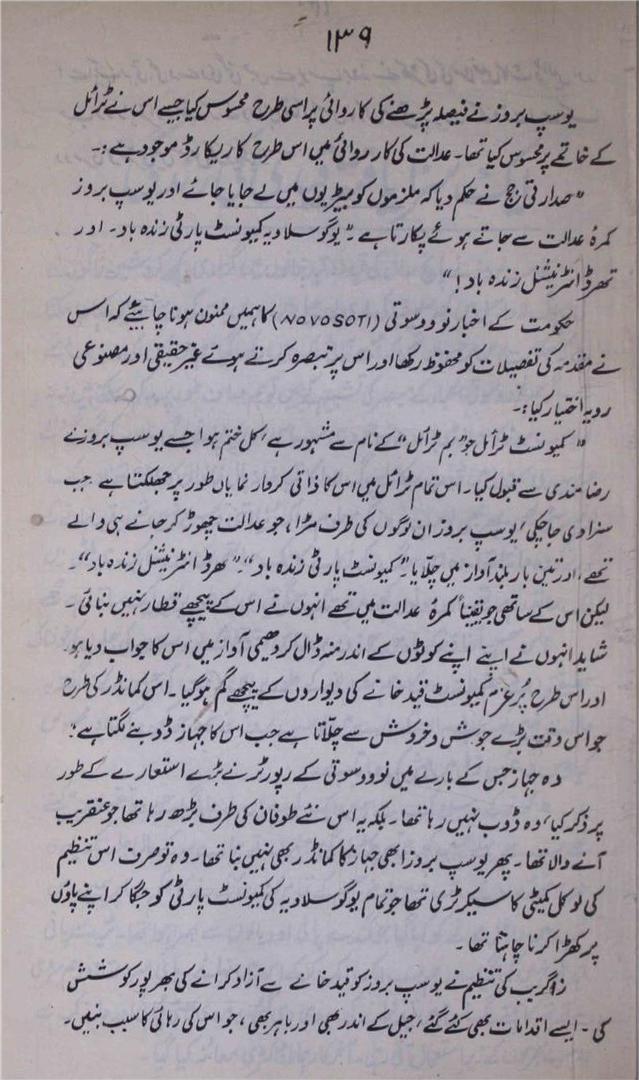 ۱۳۹
یوسپ بروز نے فیصلہ پڑھنے کی کاروائی پر اسی طرح محسوس کیا جیسے اس نے ٹرائل
کے خاتمے پر محسوس کیا تھا۔ عدالت کی کارروائی میں اس طرح کا ریکارڈ موجود ہے :۔
"صدارتی جج نے حکم دیا کہ ملزموں کو بیڑیوں میں لے جایا جائے اور یوسپ بروز
کمرۂ عدالت سے جاتے ہوئے پکارتا ہے۔ "یوگوسلاویہ کمیونسٹ پارٹی زندہ باد۔ اور
تھرڈ انٹرنیشنل زندہ باد!"
حکومت کے اخبار نوووسوتی (NOVOSOTI) کا ہمیں ممنون ہونا چاہیئے کہ اس
نے مقدمہ کی تفصیلات کو محفوظ رکھا اور اس پر تبصرہ کرتے ہوئے غیر حقیقی اور مصنوعی
رویہ اختیار کیا :۔
"کمیونسٹ ٹرائل جو "بم ٹرائل" کے نام سے مشہور ہے، کل ختم ہوا جسے یوسپ بروز نے
رضا مندی سے قبول کیا۔ اس تمام ٹرائل میں اس کا ذاتی کردار نمایاں طور پر جھلکتا ہے جب
سزا دی جا چکی، یوسپ بروز ان لوگوں کی طرف مڑا، جو عدالت چھوڑ کر جانے ہی والے
تھے، اور تین بار بلند آواز میں چلّایا۔ "کمیونسٹ پارٹی زندہ باد"۔ "تھرڈ انٹرنیشنل زندہ باد"۔
لیکن اس کے ساتھی جو یقیناً کمرۂ عدالت میں تھے انہوں نے اس کے پیچھے قطار نہیں بنائی۔
شاید انہوں نے اپنے اپنے کوٹوں کے اندر منہ ڈال کر دھیمی آواز میں اس کا جواب دیا ہو۔
اور اس طرح پُر عزم کمیونسٹ قید خانے کی دیواروں کے پیچھے گم ہوگیا۔ اس کمانڈر کی طرح
جو اس وقت بڑے جوش و خروش سے چلّاتا ہے جب اس کا جہاز ڈوبنے لگتا ہے؛
وہ جہاز جس کے بارے میں نوووسوتی کے رپورٹر نے بڑے استعارے کے طور
پر ذکر کیا، وہ ڈوب نہیں رہا تھا۔ بلکہ یہ اس نئے طوفان کی طرف بڑھ رہا تھا جو عنقریب
آنے والا تھا۔ پھر یوسپ بروز ابھی جہاز کا کمانڈر بھی نہیں بنا تھا۔ وہ تو صرف اس تنظیم
کی لوکل کمیٹی کا سیکرٹری تھا جو تمام یوگوسلاویہ کی کمیونسٹ پارٹی کو جگا کر اپنے پاؤں
پر کھڑا کرنا چاہتا تھا۔
زاگریب کی تنظیم نے یوسپ بروز کو قید خانے سے آزاد کرانے کی بھرپور کوشش
کی۔ ایسے اقدامات بھی کئے گئے، جیل کے اندر بھی اور باہر بھی، جو اس کی رہائی کا سبب بنیں۔